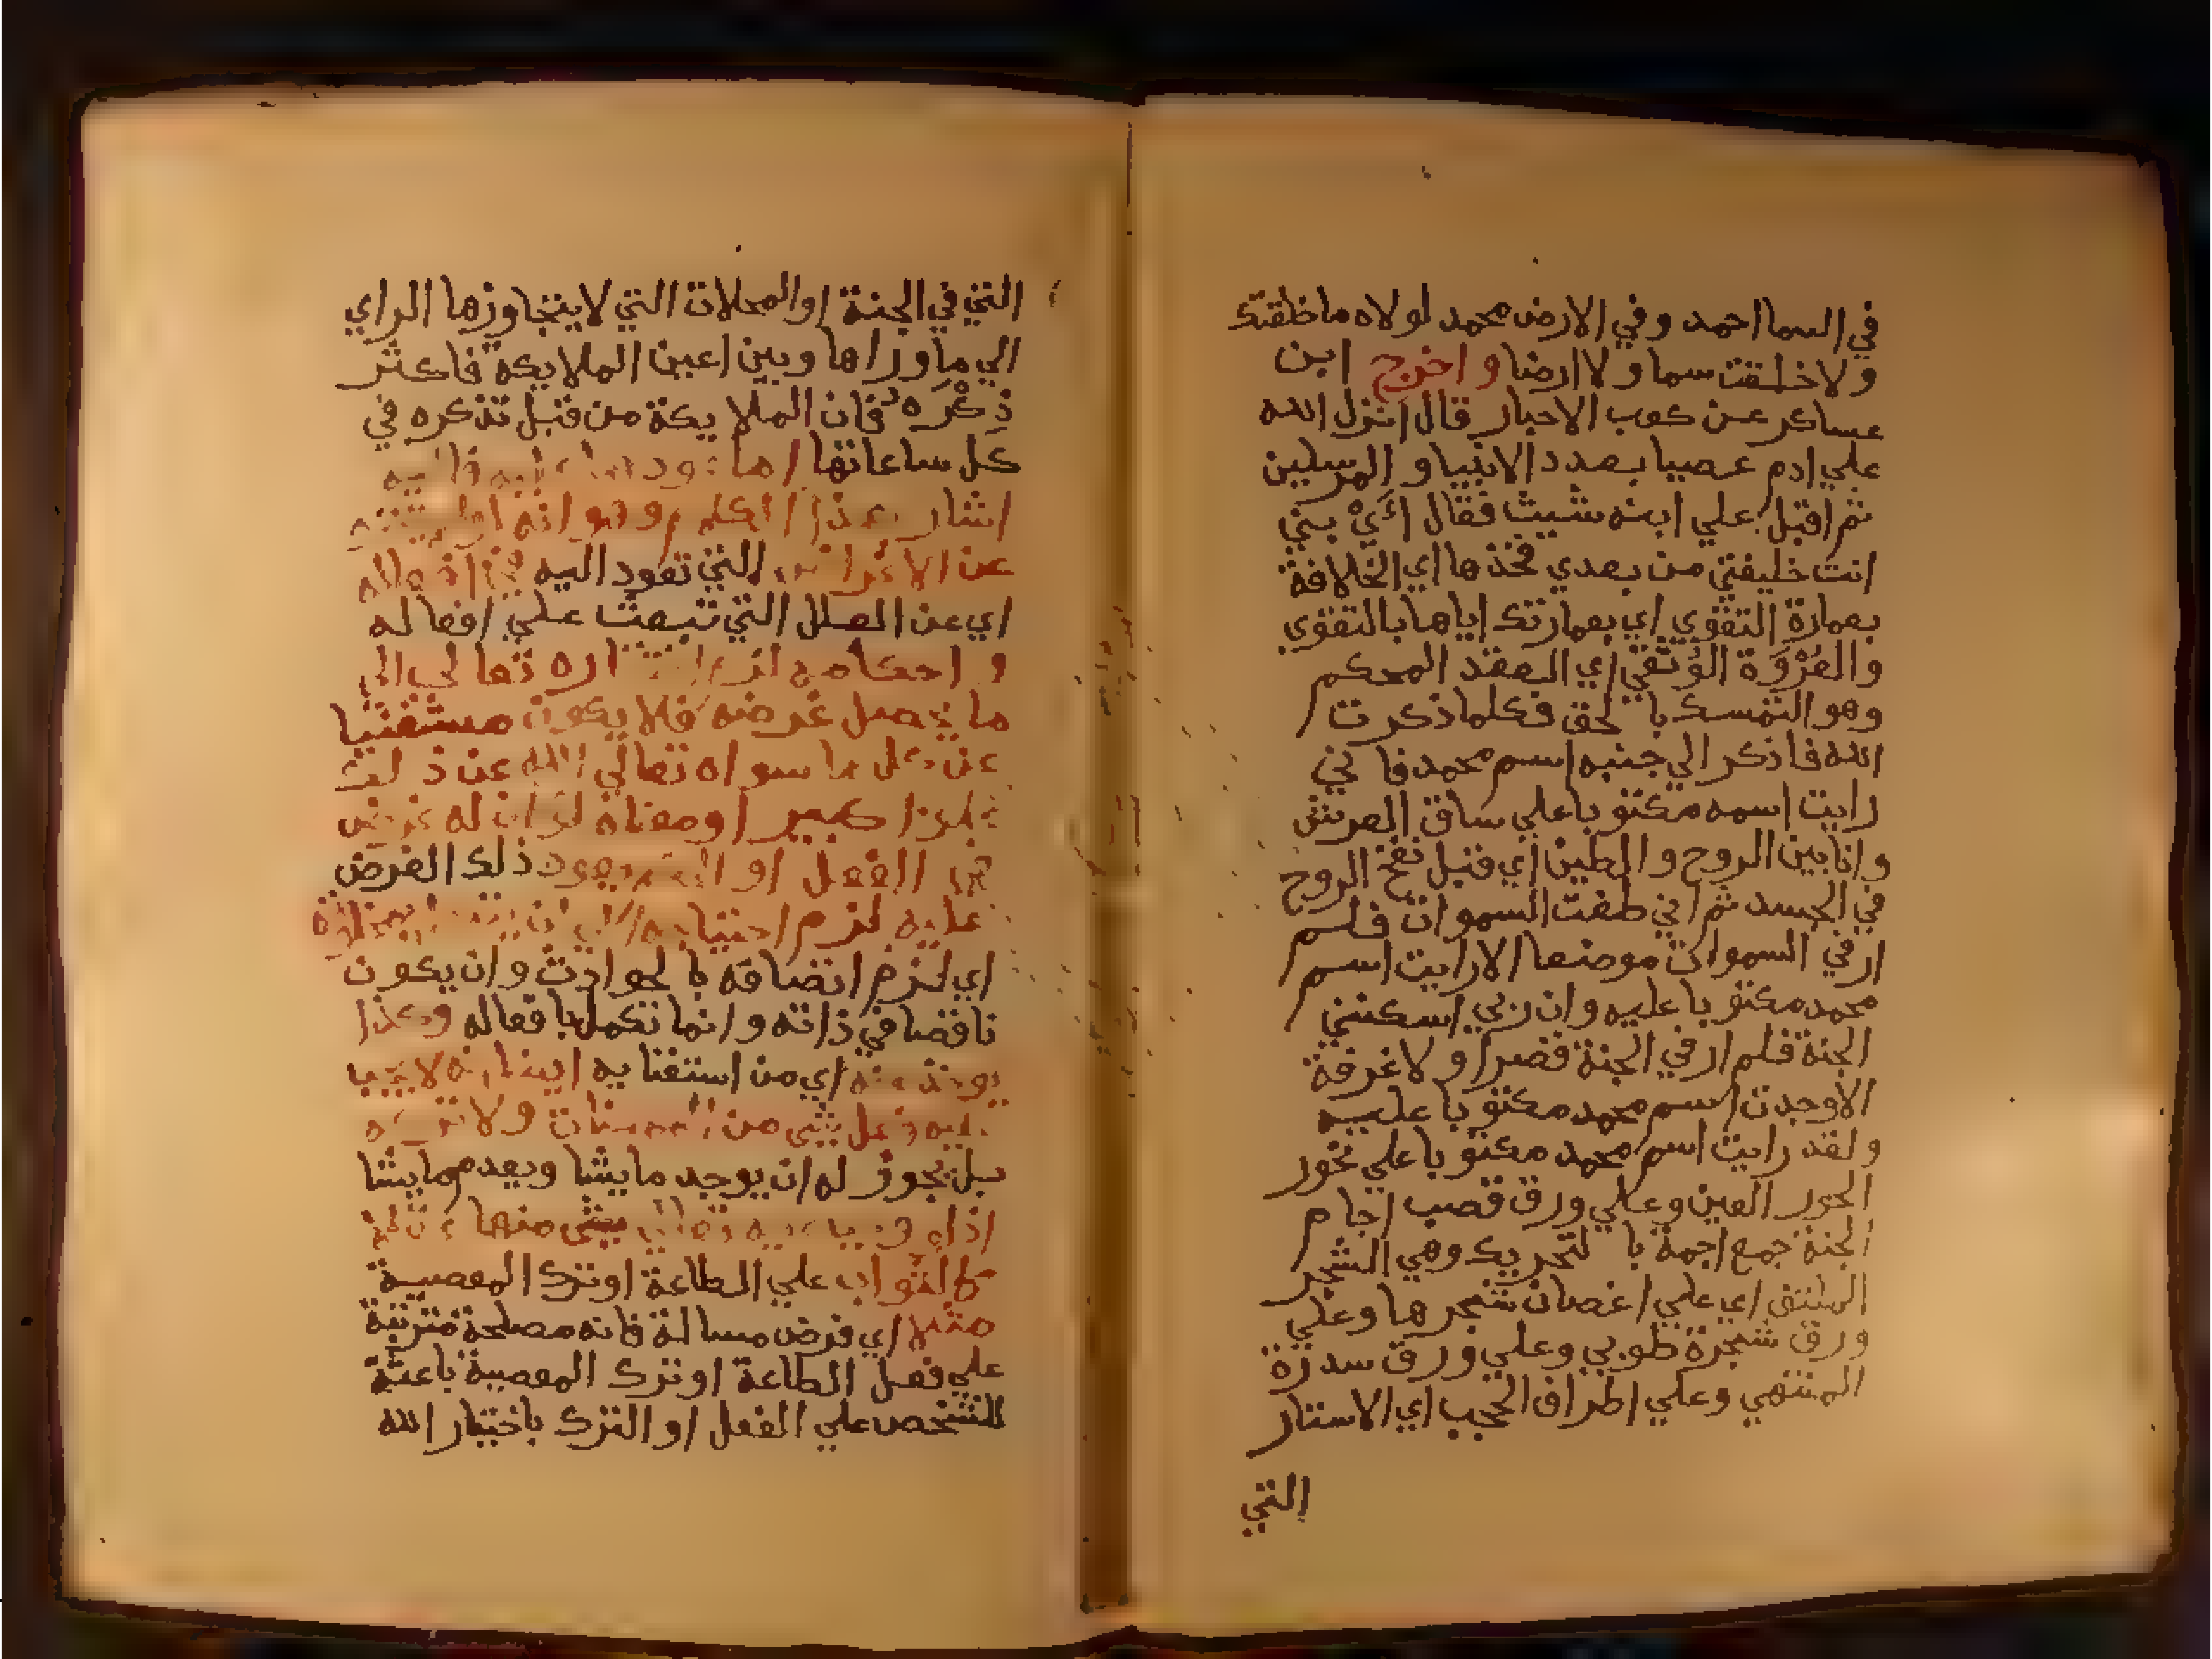 في السما احمد وفي الارض محمد لولاه ما خلقتك
ولا خلقت سما ولا ارضا واخرج ابن
عساكر عن كعب الاحبار قال انزل الله
علي ادم عصيا بعدد الانبيا والمرسلين
ثم اقبل علي ابنه شيث فقال أَيْ بني
انت خليفتي من بعدي فخذها اي الخلافة
بعمارة التقوي اي بعمارتك اياها بالتقوي
والعُرْوَة الوُثقي اي العقد المحكم
وهو التمسك بالحق فكلما ذكرت
الله فاذكر الي جنبه اسم محمد فاني
رايت اسمه مكتوبا علي ساق العرش
وانا بين الروح والطين اي قبل نفخ الروح
في الجسد ثم اني طفت السموات فلم
ار في السموات موضعا الا رايت اسم
محمد مكتوبا عليه وان ربي اسكنني
الجنة فلم ار في الجنة قصرا ولا غرفة
الا وجدت اسم محمد مكتوبا عليه
ولقد رايت اسم محمد مكتوبا علي نحور
الحور العين وعلي ورق قصب اجام
الجنة جمع اجمة بالتحريك وهي الشجر
الملتف اي علي اغصان شجرها وعلي
ورق شجرة طوبي وعلي ورق سدرة
المنتهي وعلي اطراف الحجب اي الاستار
التي
التي في الجنة او المحلات التي لا يتجاوزها الراي
الي ما وراها وبين اعين الملايكة فاكثر
ذِكْرَه فان الملايكة من قبل تذكره في
كل ساعاتها
اشار وهو انه
عن التي تعود اليه
اي عن العلل التي تبعث علي افعاله
تعالي الي
ما يحصل غرضه فلا يكون مستغنيا
عن كل ما سواه تعالي الله عن ذلك
كبيرا ومعناه له غرض
الفعل او ذلك الغرض
عليه لزم احتياجه
اي لزم اتصافه بالحوادث وان يكون
ناقصا في ذاته وانما تكمل بافعاله وكذا
يوخذ منه اي من استغنايه ايضا انه لا يجب
شي من ولا
بل يجوز له ان يوجد ما يشا ويعدم ما يشا
بشي منها
كالثواب علي الطاعة او ترك المعصية
مثلا اي فرض مسالة فانه مصلحة مترتبة
علي فعل الطاعة او ترك المعصية باعثة
للشخص علي الفعل او الترك باختيار الله